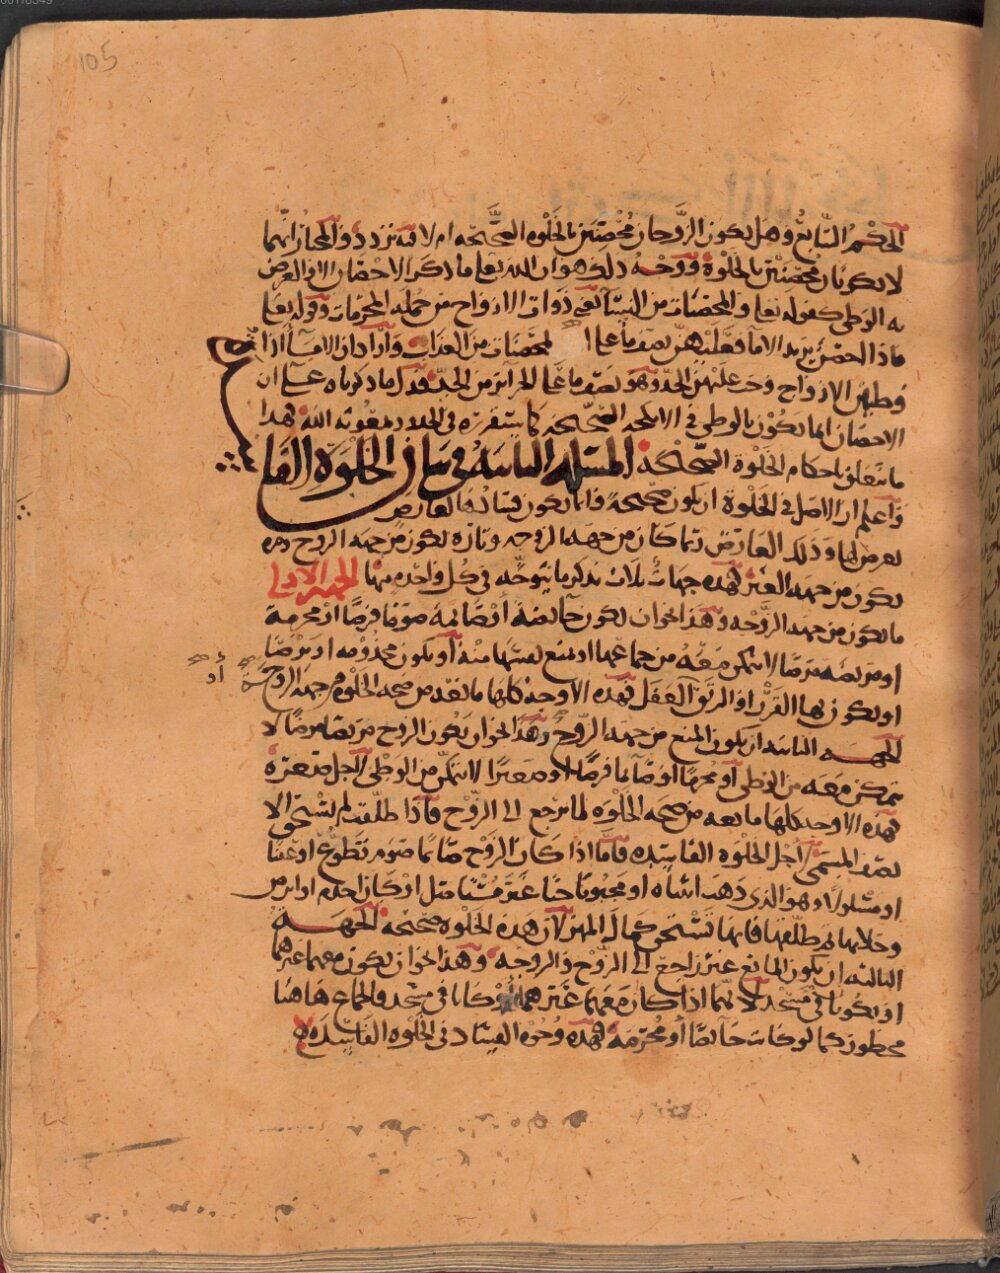 105
الحكم السابع وهل يكون الزوجان محصنين بالخلوة الصحيحه ام لا فيه تردد والمختار انهما
لا يكونان محصنين بالخلوة ووجه ذلك هو ان الله تعالى ما ذكر الاحصان الا والغرض
به الوطى كقوله تعالى والمحصنات من النسآ يعني ذوات الازواج من جمله المحرمات وقوله تعالى
فاذا احصن يريد الاما فعليهن نصف ما على المحصنات من العذاب واراد ان الامآ اذا
وطيهن الازواج وجب عليهن الحد وهو نصف ما على الحرآئر من الحد فدل ما ذكرناه على ان
الاحصان انما يكون بالوطى في الانكحه الصحيحه كما سنقرره في الحدود بمعونه الله فهذا
ما يتعلق باحكام الخلوة الصحيحه المسئله الثانيه في بيان الخلوة الفا
واعلم ان الاصل في الخلوة ان تكون صحيحة وانما يكون فسادها لعارض
يعرض لها وذلك العارض ربما كان من جهه الزوجه وتارة يكون من جهه الزوج ومره
يكون من جهه الغير فهذه جهات ثلاث نذكر ما يتوجه في كل واحده منها الجهه الاولى
ما يكون من جهه الزوجه وهذا نحو ان تكون حآئضة او صائمه صوما فرضا او محرمه
او مريضه مرضا لا يتمكن معه من جماعها او تمنع نفسها منه او تكون مجذومه او برصا
او يكون بها القرن او الرتق او العفل فهذه الاوجه كلها مانعه من صحه الخلوة من جهه الزوجة
الجهــه الثانيه ان يكون المنع من جهه الزوج وهذا نحو ان يكون الزوج مريضا مرضا لا
يتمكن معه من الوطى او محرما او صآئما فرضا او
فهذه الاوجه كلها مانعه من صحه الخلوه لما يرجع الى الزوج فاذا طلقت لم تستحق الا
نصف المسمى لاجل الخلوه الفاسده فاما اذا كان الزوج صائما صوم تطوع او عنينا
او مسلولا وهو الذي ذهب انثياه او مجبوبا
وخلا بها ثم طلقها فانها تستحق كمال المهر لان هذه الخلوة صحيحه الجهــة
الثالثه ان يكون المانع غير راجع الى الزوج والزوجه وهذا نحو ان يكون معهما غيرهما
او يكونا في مسجد لانهما اذا كان معهما غيرهما او كانا في مسجد فالجماع هاهنا
محظور كما لو كانت حائضا او محرمة فهذه وجوه الفساد في الخلوه الفاسده